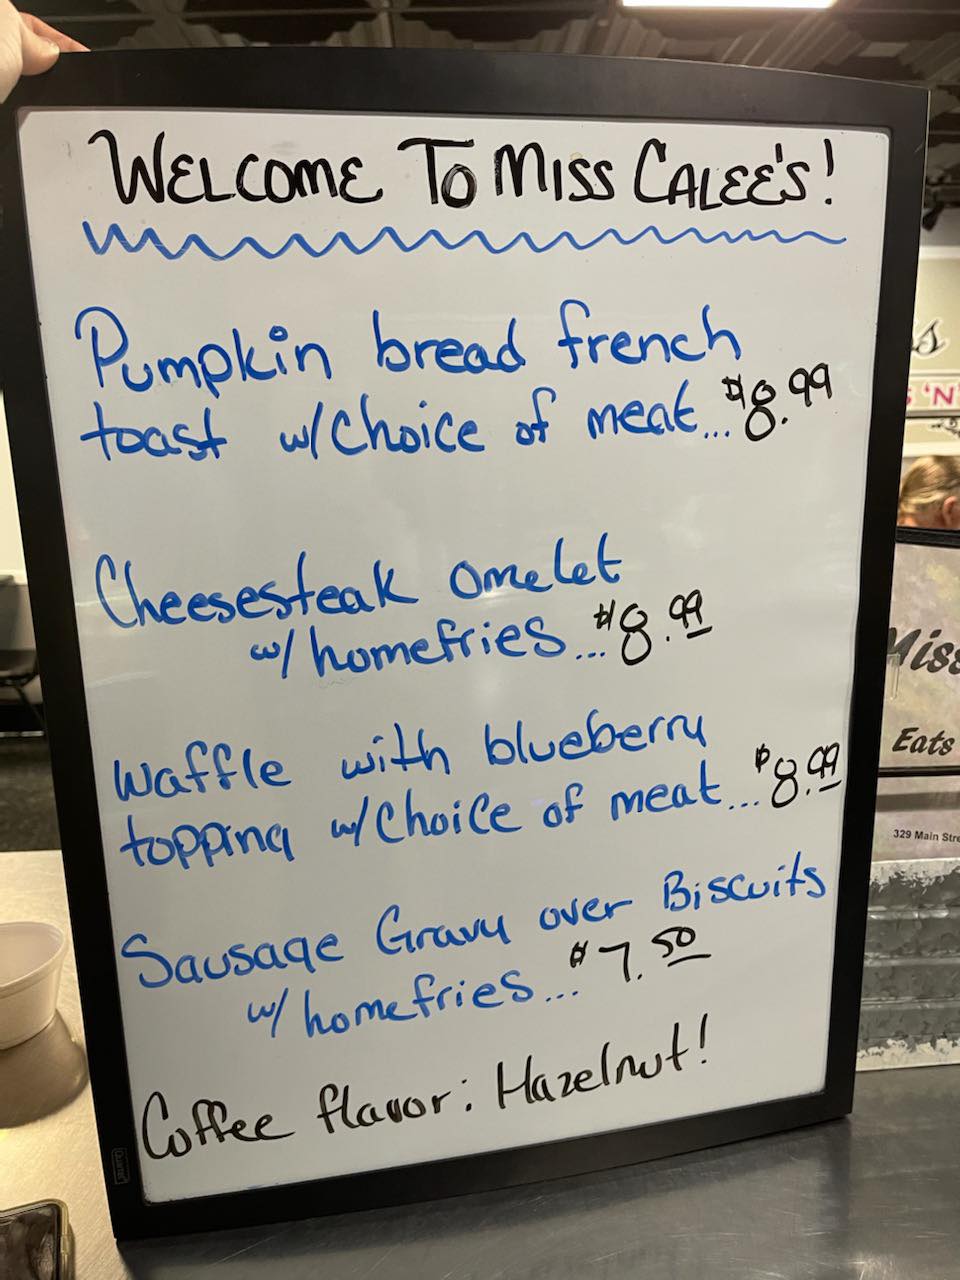 WELCOME TO MISS CALEE'S!
Pumpkin bread french
toast w/choice of meat...$8.99
Cheesesteak omelet
w/homefries...$8.99
Waffle with blueberry
topping w/choice of meat...$8.99
Sausage Gravy over Biscuits
w/homefries...$7.50
Coffee flavor: Hazelnut!
'N'
Miss
Eats
329 Main Stre
Quartet